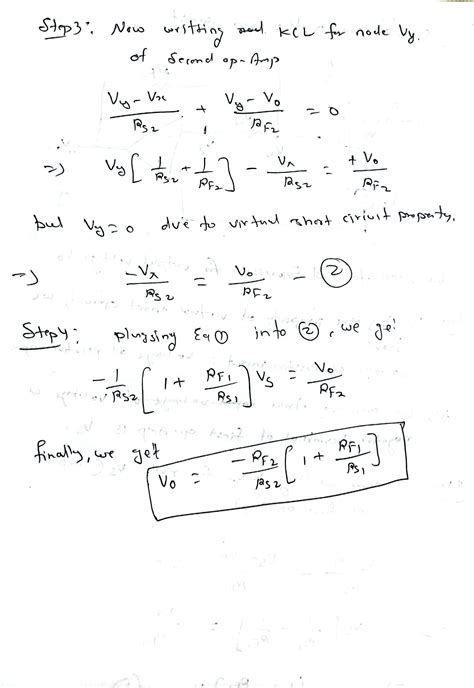 Step3: Now writting KCL for node Vy
of Second op-Amp
(Vy - Vx)/RS2 + (Vy - Vo)/RF2 = 0
=> Vy [1/RS2 + 1/RF2] - Vx/RS2 = +Vo/RF2
but Vy = 0 due to virtual short circuit property.
=> -Vx/RS2 = Vo/RF2 - ②
Step4: plugging Eq ① into ②, we get
-1/RS2 [1 + RF1/RS1] Vs = Vo/RF2
finally, we get
Vo = -RF2/RS2 [1 + RF1/RS1]